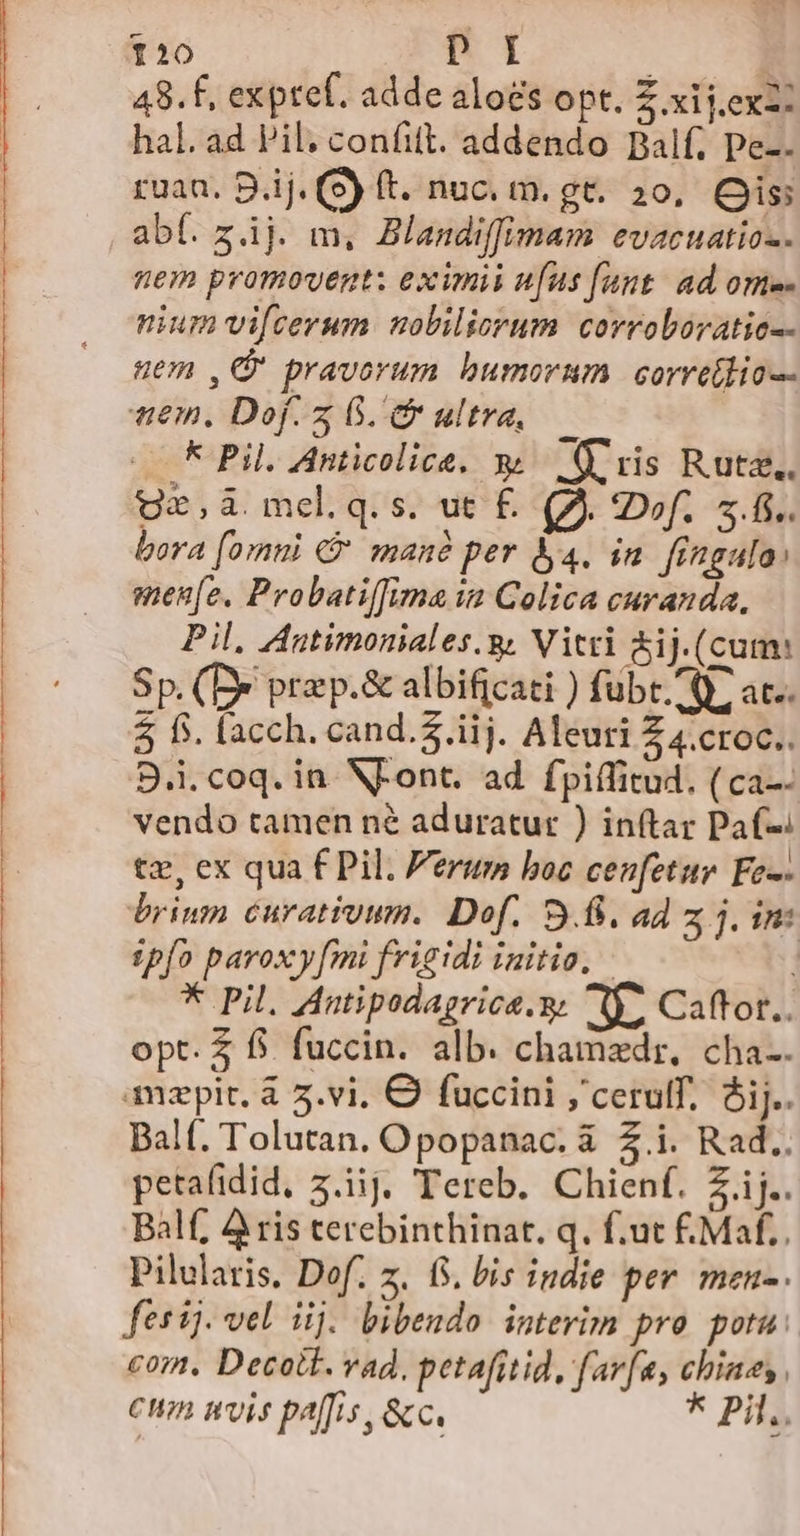 120 P I
48. f. expreſ. adde aloës opt. ℥.xij.ex-
hal. ad Pil. conſiſt. addendo Balſ. Pe-
ruan. ℈.ij. ſt. nuc. m. gt. 20. is
abſ. ʒ.ij. m. Blandiſſimam evacuatio-
nem promovent: eximii uſus ſunt ad om-
nium viſcerum nobiliorum corroboratio-
nem, & pravorum humorum correctio-
nem. Doſ. ʒ ß. & ultra.
* Pil. Anticolicæ. ℞ ris Rutæ,
æ, ā. mel. q. s. ut f. Doſ. ʒ.ß.
hora ſomni & manè per 4. in ſingulo
menſe. Probatiſſima in Colica curanda.
Pil. Antimoniales. ℞. Vitri ♁ij. (cum
Sp. præp. & albificati) ſubt. at.
℥ ß. ſacch. cand. ℥.iij. Aleuri ℥ 4. croc.
℈.i. coq. in Font. ad ſpiſſitud. (ca-
vendo tamen nè aduratur) inſtar Paſ-
tæ, ex qua f Pil. Verum hoc cenſetur Fe-
brium curativum. Doſ. ℈.ß. ad ʒ j. in
ipſo paroxyſmi frigidi initio.
* Pil. Antipodagricæ. ℞ Caſtor.
opt. ℥ ß ſuccin. alb. chamædr. cha-
mæpit. ā ʒ.vi. ſuccini, ceruſſ. ♁ij.
Balſ. Tolutan. Opopanac. ā ℥.i. Rad.
petaſidid. ʒ.iij. Tereb. Chienſ. ℥.ij.
Balſ. ♁ris terebinthinat. q. ſ. ut f. Maſ.
Pilularis. Doſ. ʒ. ß. bis indie per men-
ſes ij. vel iij. bibendo interim pro potu
com. Decoct. rad. petaſitid. farſæ, chinæ,
cum uvis paſſis, &c. * Pil.